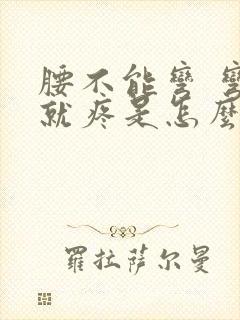 腰不能彎 彎
就疼是怎麼
羅拉薩尔曼